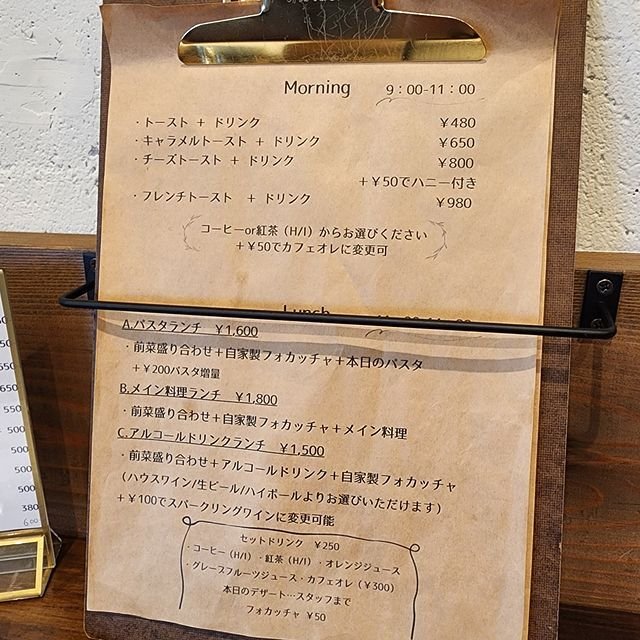 Morning 9:00-11:00
・トースト + ドリンク ¥480
・キャラメルトースト + ドリンク ¥650
・チーズトースト + ドリンク ¥800
+¥50でハニー付き
・フレンチトースト + ドリンク ¥980
コーヒーor紅茶(H/I)からお選びください
+¥50でカフェオレに変更可
Lunch
A.パスタランチ ¥1,600
・前菜盛り合わせ+自家製フォカッチャ+本日のパスタ
+¥200パスタ増量
B.メイン料理ランチ ¥1,800
・前菜盛り合わせ+自家製フォカッチャ+メイン料理
C.アルコールドリンクランチ ¥1,500
・前菜盛り合わせ+アルコールドリンク+自家製フォカッチャ
(ハウスワイン/生ビール/ハイボールよりお選びいただけます)
+¥100でスパークリングワインに変更可能
セットドリンク ¥250
・コーヒー(H/I)・紅茶(H/I)・オレンジジュース
・グレープフルーツジュース・カフェオレ(¥300)
本日のデザート…スタッフまで
フォカッチャ ¥50
650
650
550
500
500
500
380
600